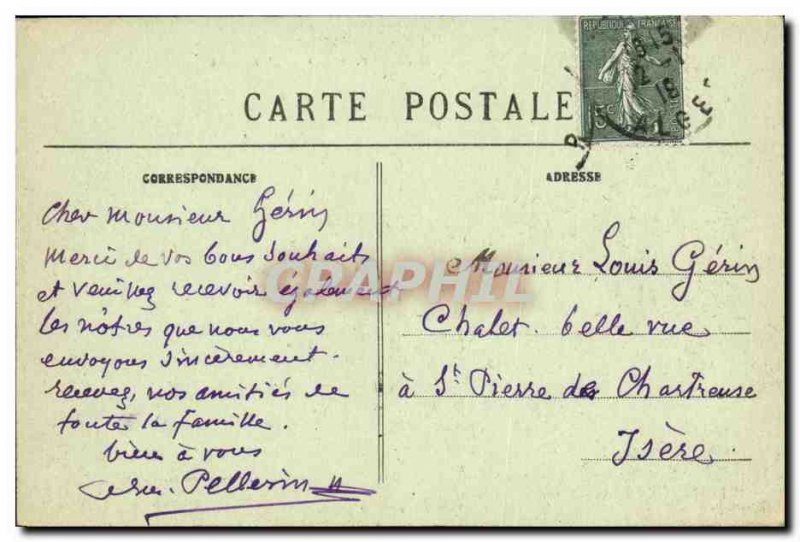 REPUBLIQUE FRANÇAISE
15c
CARTE POSTALE
ALGER
CORRESPONDANCE
Cher Monsieur Gérin
Merci de vos bons souhaits
et veuillez recevoir également
les nôtres que nous vous
envoyons sincèrement.
recevez, nos amitiés de
toute la famille.
bien à vous
Pellerin
ADRESSE
Monsieur Louis Gérin
Chalet belle vue
à St Pierre de Chartreuse
Isère
CARTE
GRAPHIL